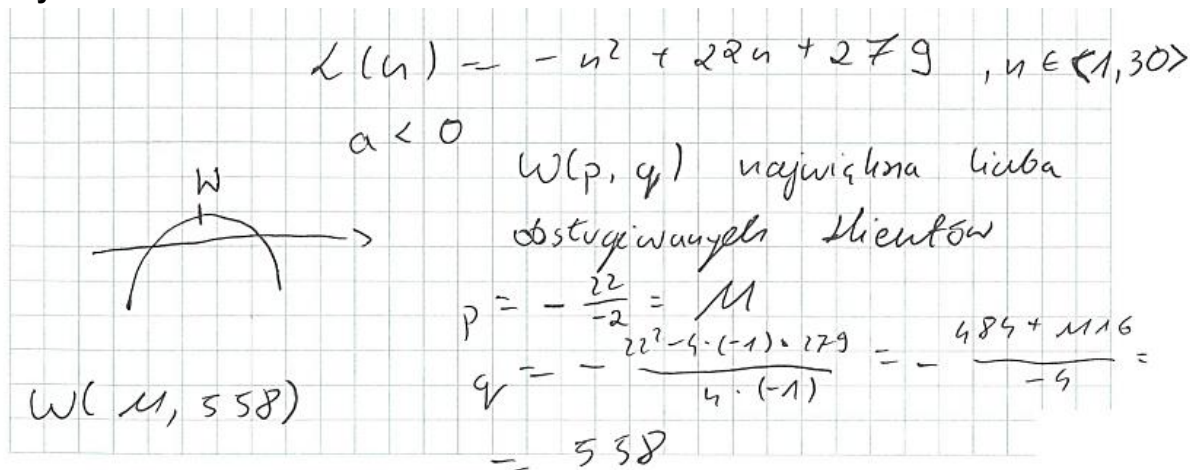 L(n) = -n² + 22n + 279 , n ∈ <1,30>
a < 0
W
W(p, q) największa liczba
obsługiwanych klientów
p = - 22/-2 = 11
q = - 22²-4·(-1)·279 / 4·(-1) = - 484+1116 / -4 =
W(11, 558)
= 558